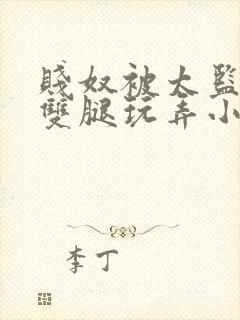 賤奴被太監
雙腿玩弄小
李丁